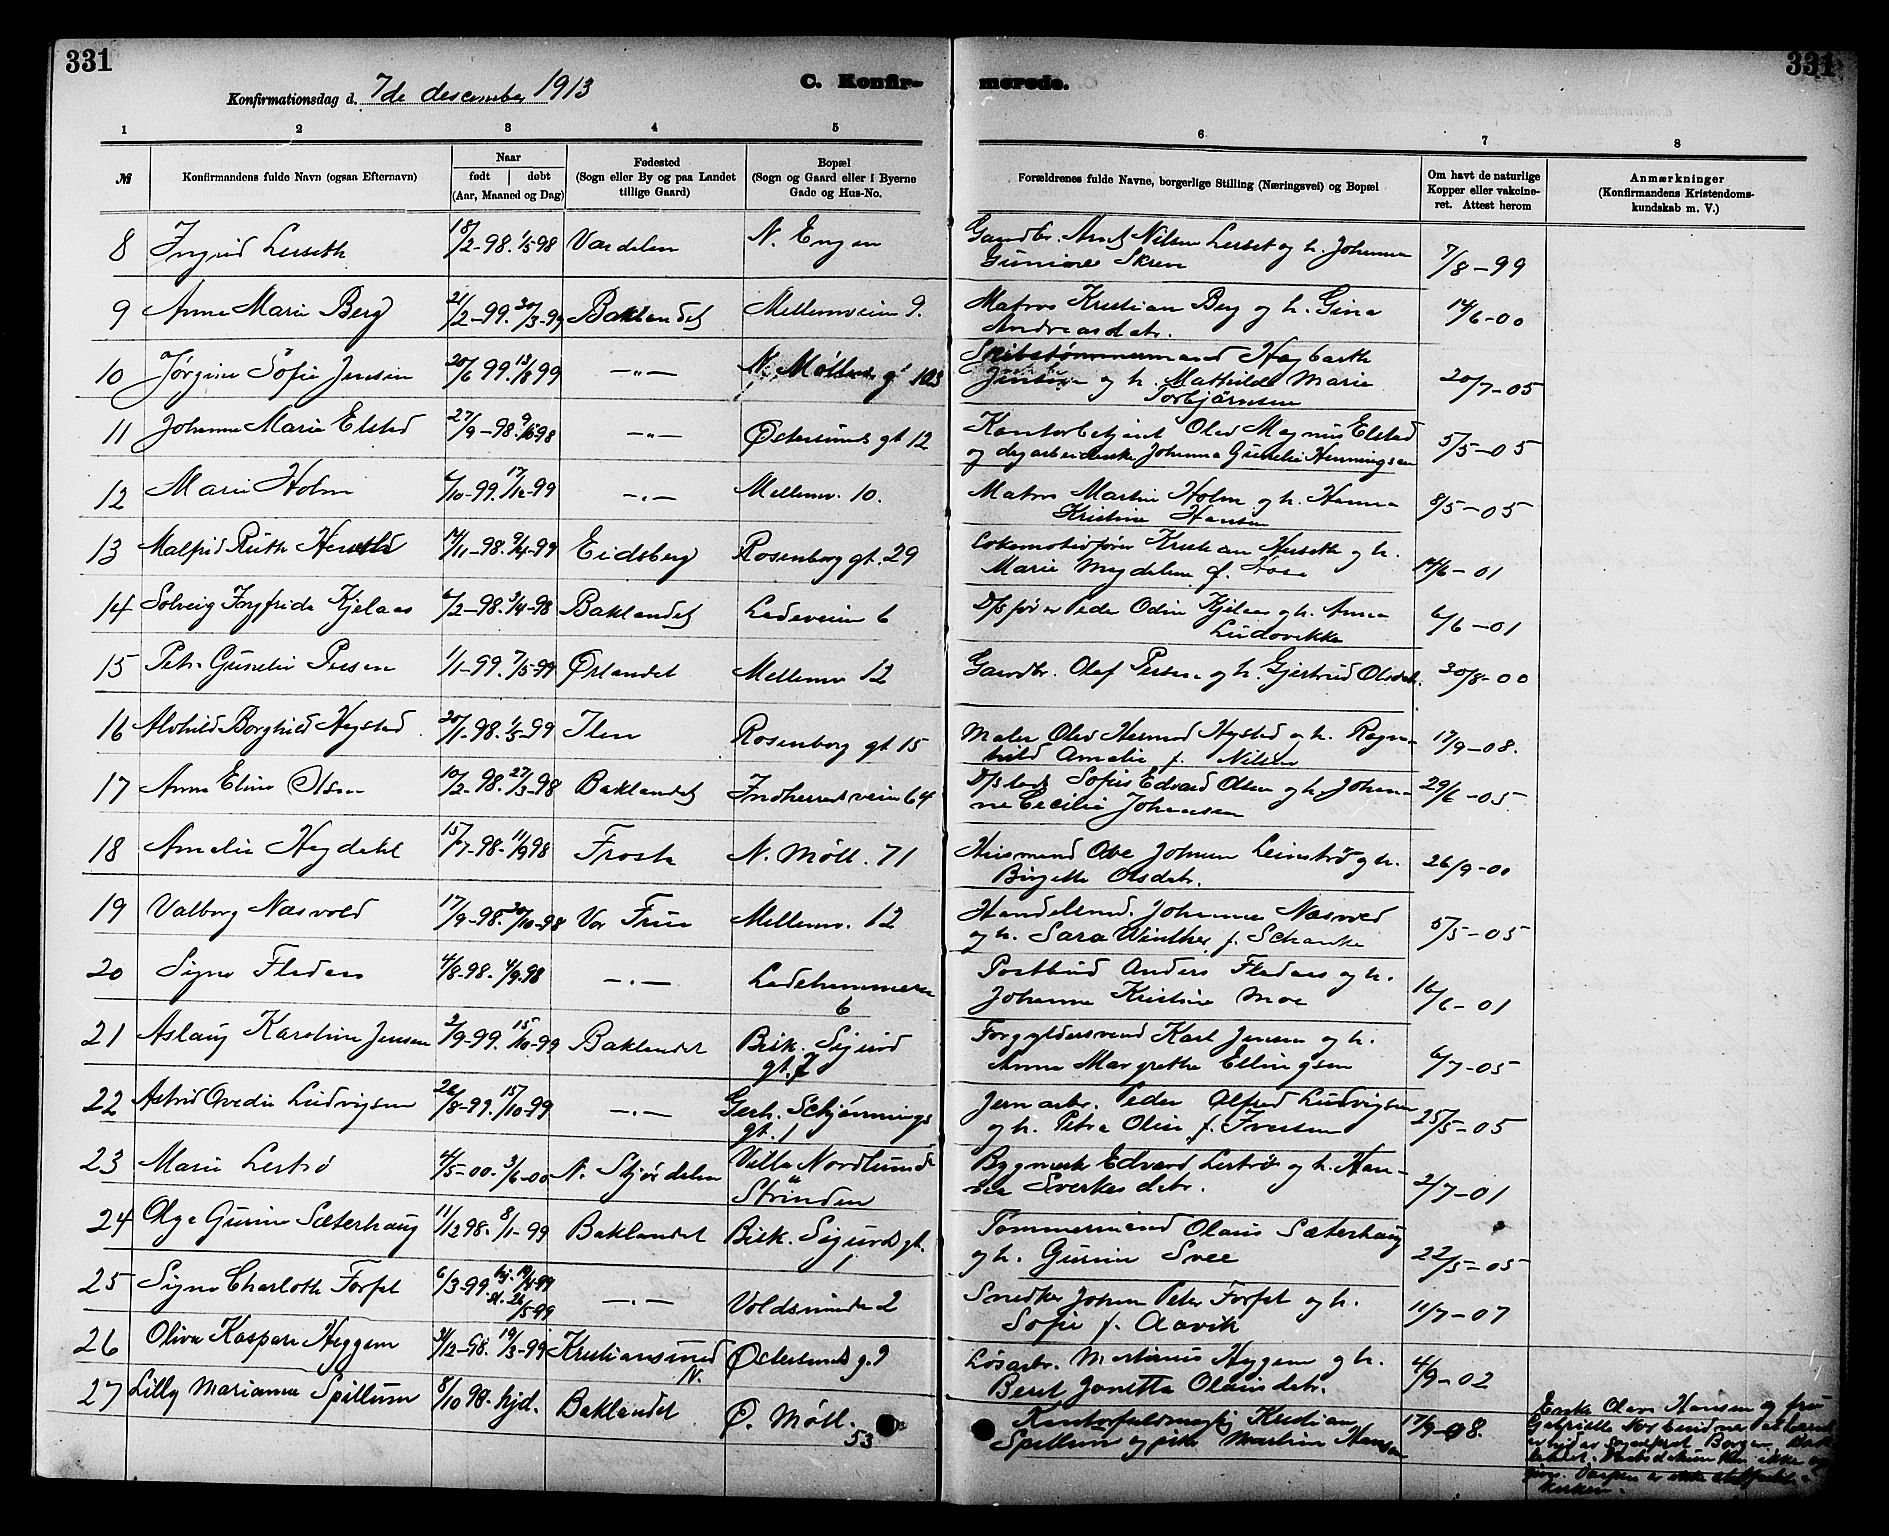 331
331
Konfirmationsdag d. 7de desember 1913
C. Konfir-
merede.
1 2 3 4 5 6 7 8
№
Konfirmandens fulde Navn (ogsaa Efternavn)
Naar
født | døbt
(Aar, Maaned og Dag)
Fødested
(Sogn eller By og paa Landet
tillige Gaard)
Bopæl
(Sogn og Gaard eller i Byerne
Gade og Hus-No.
Forældrenes fulde Navne, borgerlige Stilling (Næringsvei) og Bopæl
Om havt de naturlige
Kopper eller vakcine-
ret. Attest herom
Anmærkninger
(Konfirmandens Kristendoms-
kundskab m. V.)
8 Ingrid Lerseth 18/2-98. 1/5 98 Værdalen N. Engen Gaardbr. Arnt Nilsen Lerset og h. Johanna
Skrove 7/8-99
9 Anna Marie Berg 21/2-99. 30/3-99 Baklandet Mellemveien 9. Matros Kristian Berg og h. Gina
Andreasdatr. 14/6-00
10 Jørgine Sofie Jensen 20/6 99. 13/8 99 -"- N. Møllenb. gt 103 Skibstømmermand Hagbarth
Jensen og h. Mathilde Marie
Torbjørnsen 20/7-05
11 Johanna Marie Elstad 27/9-98. -"- Østersunds gt 12 Kontorbetjent Olav Magnus Elstad
og Johanna Gurelie Henningsen 5/5-05
12 Marie Holm 6/10-99. 17/12-99 -"- Mellemv. 10. Matros Martin Holm og h. Hanna
Kristine Hansen 8/5-05
13 Malfrid Ruth Herseth 14/11-98. 9/4-99 Eidsberg Rosenborg gt. 29 Lokomotivfører Kristian Herseth og h.
Marie Magdalene f. 14/6-01
14 Solveig Ingfrida Kjelaas 6/2-98. 3/4-98 Baklandet Ladeveien 6 D/s fører Peder Odin Kjelaas og h. Anna
Ludovikka 6/6-01
15 Petra Gurelie Persen 1/1-99. 7/5-99 Ørlandet Mellemv 12 Gaardbr. Olaf Persen og h. Gjertrud Olsdatr. 30/8-00
16 Alvhild Borghild Hegstad 20/1-98. 1/5-99 Ilen Rosenborg gt 15 Maler Olav Herman Hegstad og h. Ragn-
hild Amalie f. Nilsen 17/9-08.
17 Anna Eline Olsen 10/2-98. 27/3-98 Baklandet Indherredsveien 64 D/s lods Sofus Edvard Olsen og h. Johan-
ne Cecilie Johansen 29/6-05
18 Amalie Hegdahl 15/7-98. 11/9 98 Frosta N. Møll. 71 Husmand Ole Johnsen Leinstrø og h.
Birgitte Olsdatr. 26/9-00
19 Valborg Næsvold 17/9-98. 30/10-98 Vor Frue Mellemv. 12 Handelsmd. Johannes Næsvold
og h. Sara Winther f. Schanke 5/5-05
20 Signe Fladaas 4/8-98. 4/9-98 -"- Ladehammeren
6 Postbud Anders Fladaas og h.
Johanna Kristine Moe 16/6-01
21 Aslaug Karoline Jensen 2/9-99. 15/10-99 Baklandet Bisk. Sigurd
gt. 7 Forgyldersvend Karl Jensen og h.
Anna Margrethe Ellingsen 6/7-05
22 Astrid Ovedie Ludvigsen 26/8-99. 15/10-99 -"- Gerh. Schjønnings
gt. 1 Jernarb. Peder Alfred Ludvigsen
og h. Petra Olise f. Iversen 25/5-05
23 Marie Lerstrø 4/5-00. 3/6-00 N. Stjørdalen Villa Nordlund
Strinden Bygmest. Edvard Lerstrø og h. Han-
na Sverkesdatr. 2/7-01
24 Olga Gurine Sæterhaug 11/12 98. 8/1-99 Baklandet Bisk. Sigurds gt.
1 Tømmermand Olaus Sæterhaug
og h. Gurine Svee 22/5-05
25 Signe Charlotte Forfot 6/3-99 hj. 19/4-99
st. 26/5-99 -"- Voldsminde 2 Snedker Johan Peter Forfot og h.
Sofie f. Aavik 11/7-07
26 Oliva Kaspara Heggem 31/12-98. 19/3-99 Kristiansund
N. Østersunds g. 9 Løsarb. Martinus Heggem og h.
Beret Jonetta Olaussdatr. 4/9-02
27 Lilly Marianna Spillum 8/10 98. hjd. Baklandet Ø. Møll.
53 Kontorfuldmægtig Kristian
Spillum og pike Martine Hansen 17/9-98.
Enke Olava Hansen og fru
Gabrielle at barnet
er hjd. av sogneprest
ikke
er ikke
kirken.